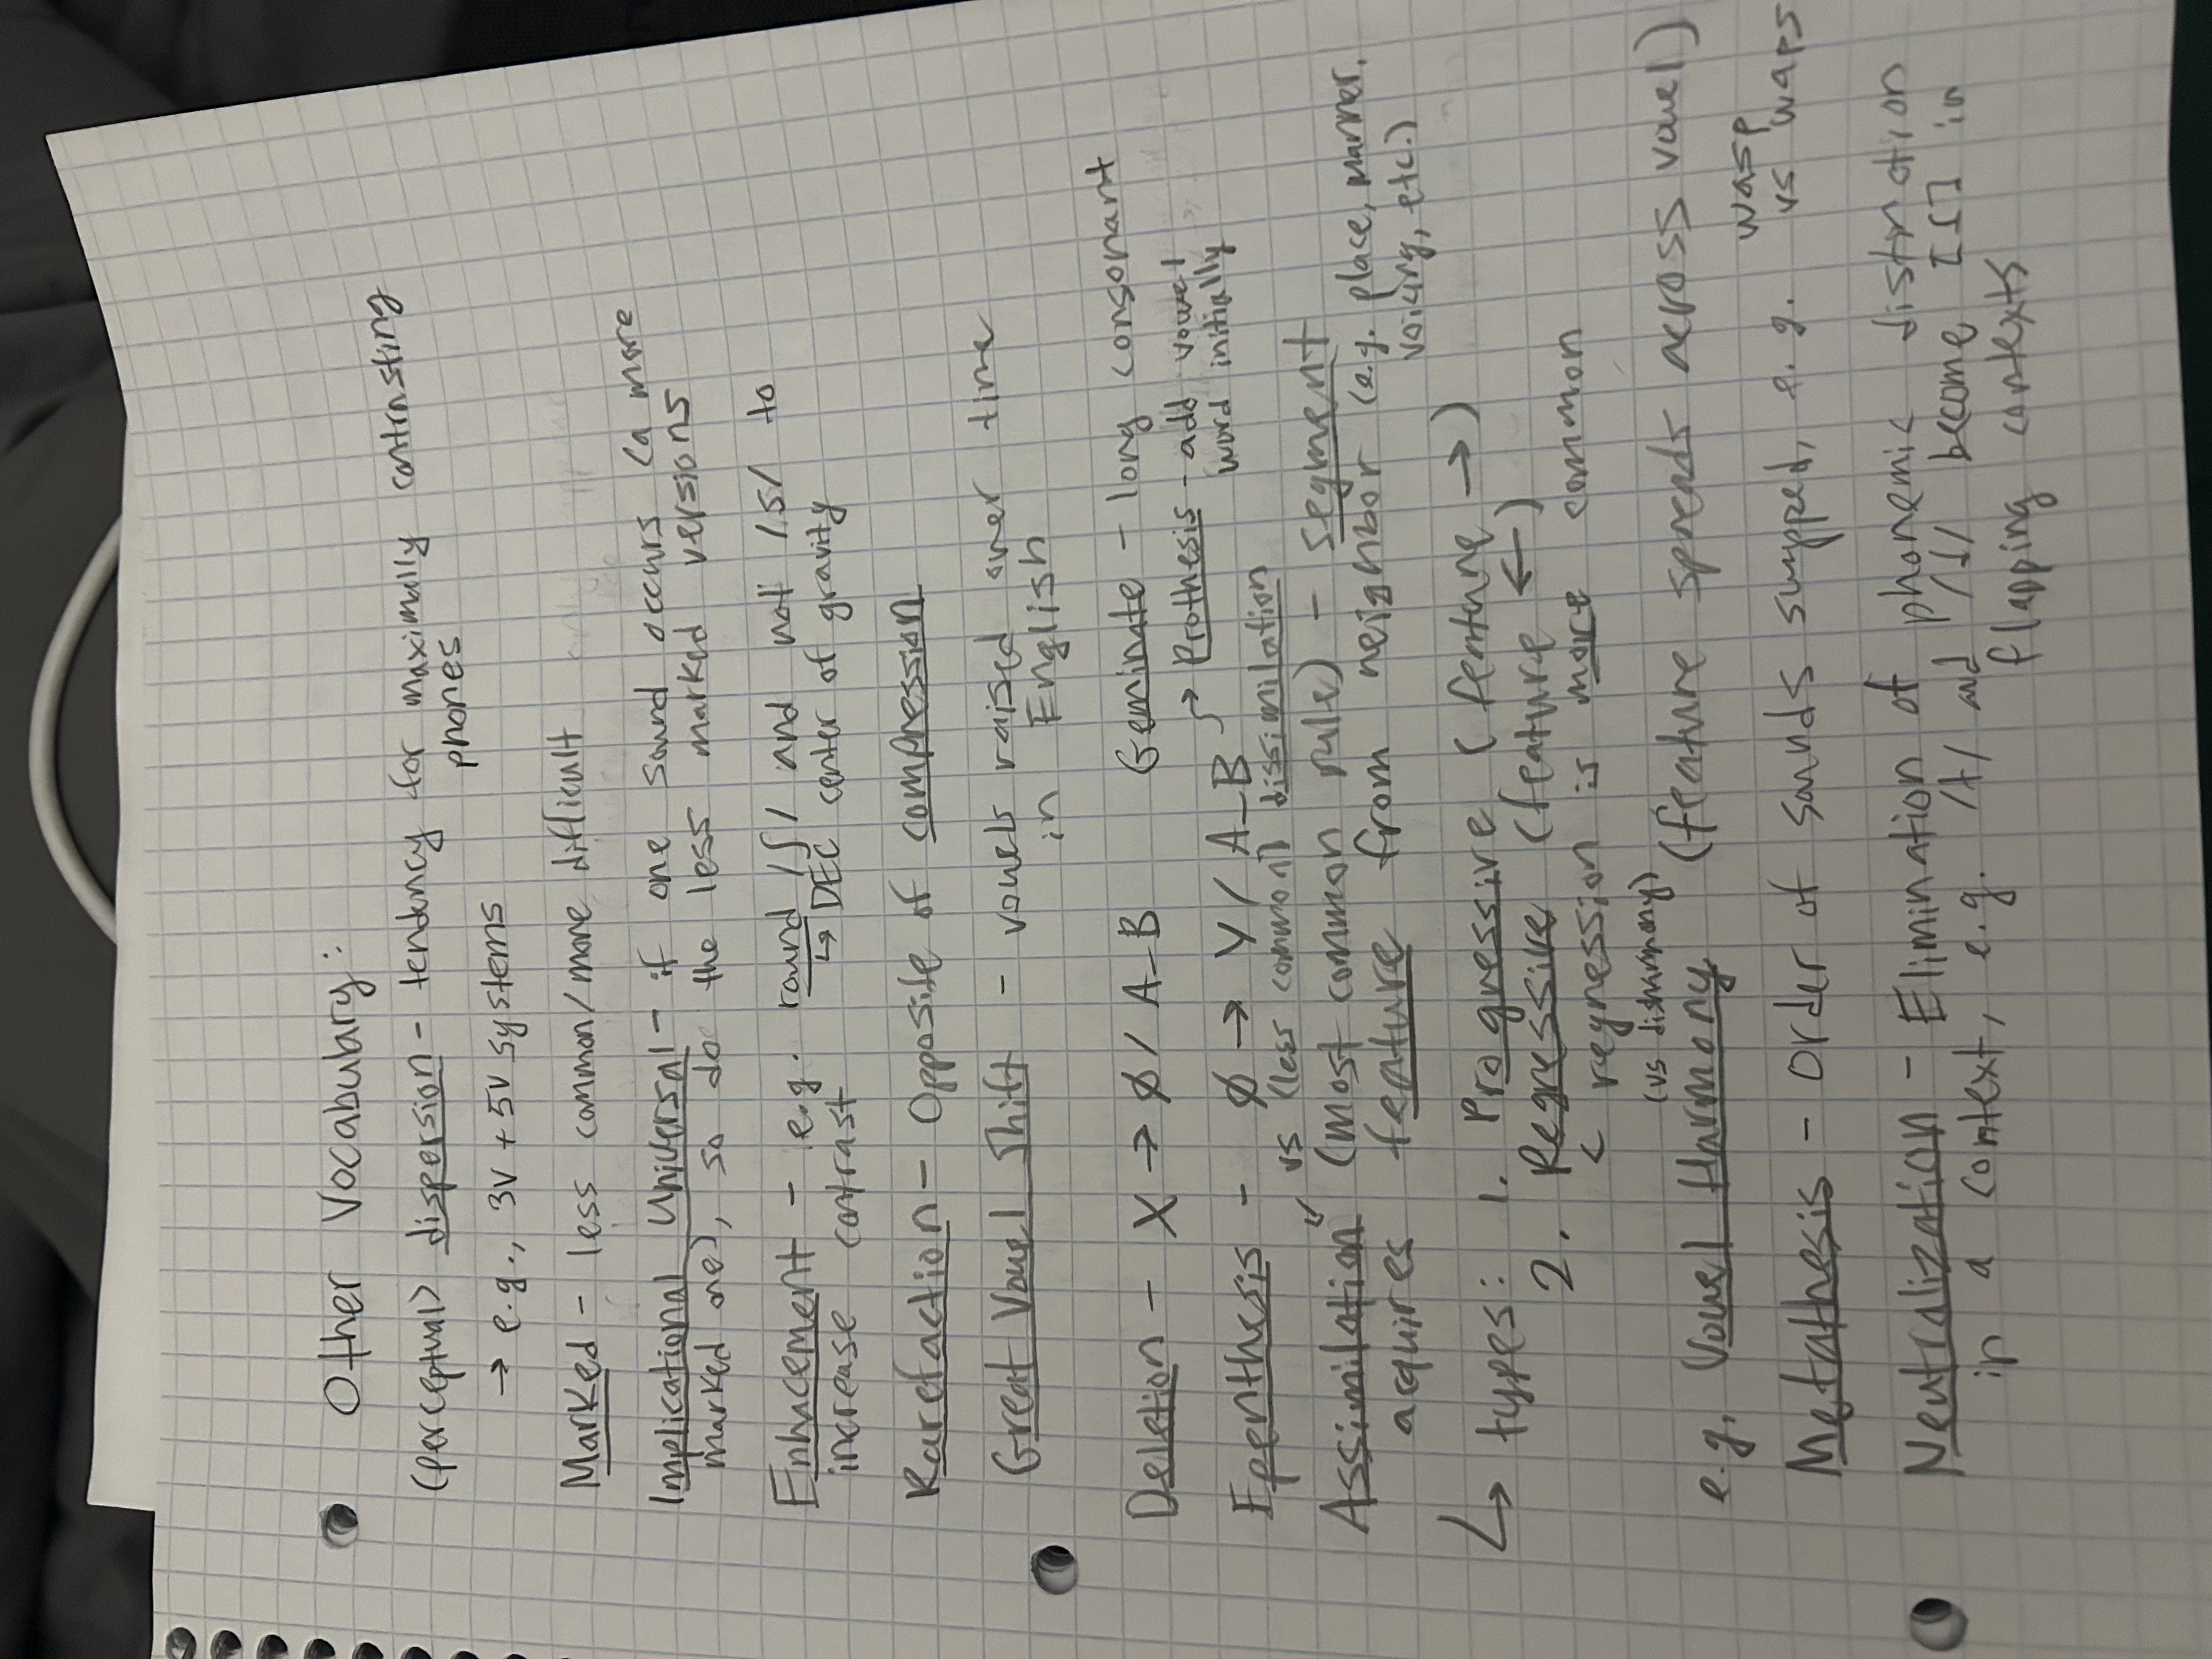 Other Vocabulary:
(perceptual) dispersion - tendency for maximally contrasting
phones
→ e.g., 3V + 5V systems
Marked - less common/more difficult
Implicational Universal - if one sound occurs (a more
marked one), so do the less marked versions
Enhacement - e.g. round /ʃ/ and not /s/ to
↳ DEC center of gravity
increase contrast
Rarefaction - Opposite of compression
Great Vowel Shift - vowels raised over time
in English
Deletion - X → ∅ / A_B
Geminate - long consonant
Epenthesis - ∅ → Y / A_B
→ Prothesis - add vowel
word initially
vs (less common) dissimilation
Assimilation (most common rule) - segment
acquires feature from neighbor (e.g. place, manner,
voicing, etc.)
↳ types: 1. Progressive (feature →)
2. Regressive (feature ←)
< regression is more common
(vs disharmony)
e.g. Vowel Harmony (feature spreads across vowel)
Metathesis - Order of sounds swapped, e.g. wasp
vs waps
Neutralization - Elimination of phonemic distinction
in a context, e.g. /t/ and /d/ become [ɾ] in
flapping contexts